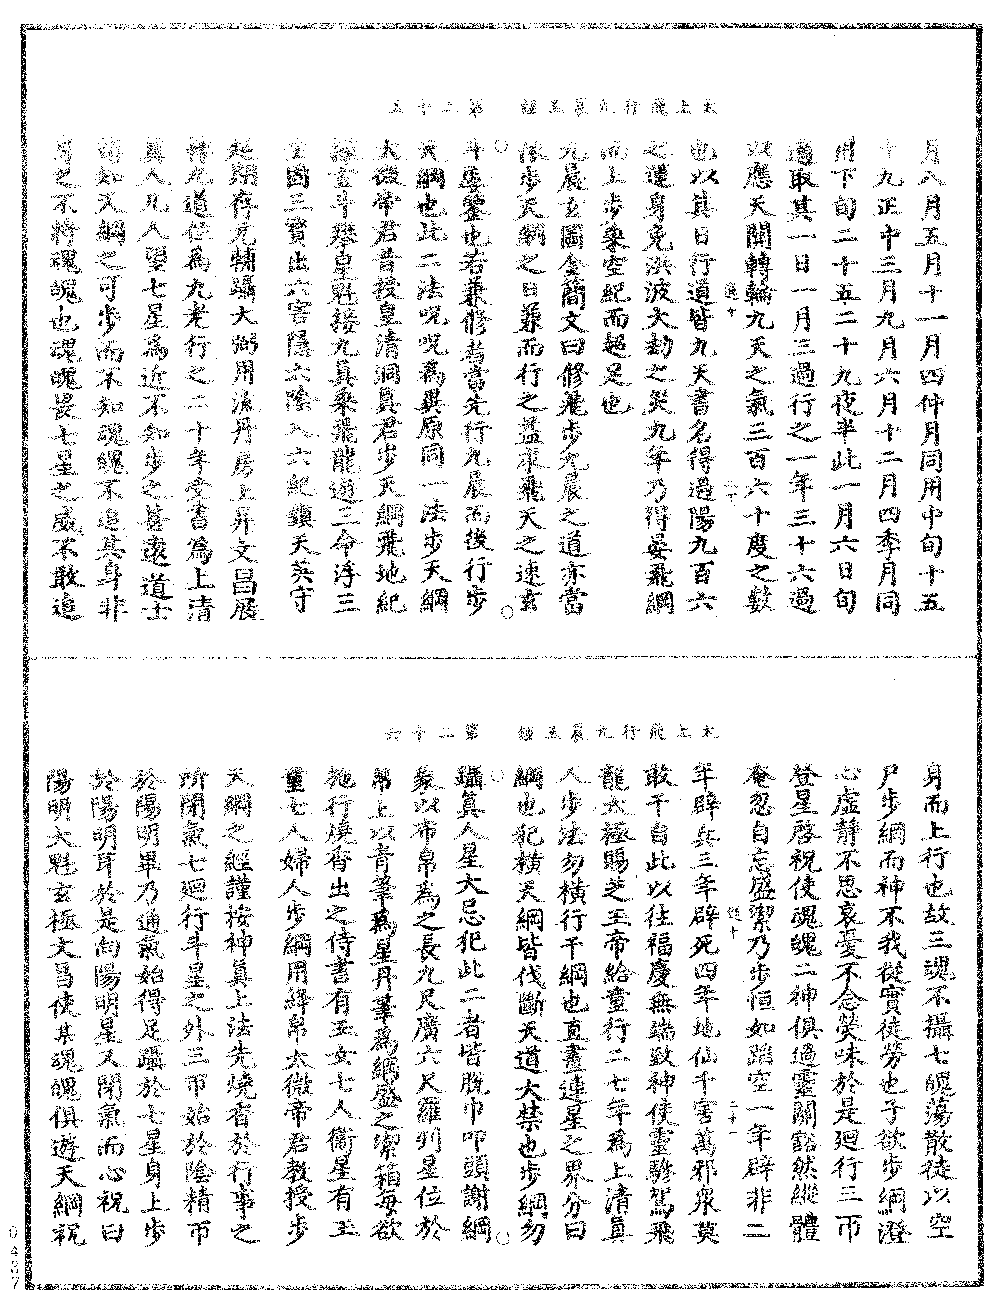 太上飛行九晨玉經　第二十五
月八月五月十一月四仲月同用中旬十五
十九正中三月九月六月十二月四季月同
用下旬二十五二十九夜半此一月六日旬
過取其一日一月三過行之一年三十六過
以應天關轉輪九天之氣三百六十度之數
也以其日行道皆九天書名得過陽九百六
之運身免洪波大劫之災九年乃得晏飛綱
而上步乘空紀而超足也
九晨玄圖金簡文曰修飛步九晨之道亦當
依步天綱之日兼而行之益求飛天之速玄
斗玉籙也若兼修者當先行九晨而後行步
天綱也此二法呪呪為異原同一法步天綱
太微帝君昔授皇清洞真君步天綱飛地紀
攝玄斗舉皇魁接九真乘飛龍遊三命浮三
空酋三寶出六害隱六陰入六紀鎮天英守
起期存元輔躡大弼用流丹房上昇文昌展
轉九道位為九老行之二十年受書為上清
真人凡人望七星為近不知步之甚遠道士
知如天綱之可步而不知魂魄不追其身非
身之不將魂魄也魂魄畏七星之威不敢追
太上飛行九晨玉經　第二十六
身而上行也故三魂不攝七魄蕩散徒以空
尸步綱而神不我從實徒勞也子欲步綱澄
心虛靜不思哀憂不念榮味於是廻行三帀
登星啓祝使魂魄二神俱過靈關豁然縱體
奄忽自忘盛潔乃步恒如蹈空一年辟非二
年辟兵三年辟死四年地仙千害萬邪衆莫
敢干自此以往福慶無端致神使靈驂駕飛
龍太極賜芝玉帝給童行二七年為上清真
人步法勿橫行干綱也直畫連星之界分曰
綱也犯橫天綱皆伐斷天道大禁也步綱勿
躡真人星大忌犯此二者皆脫巾叩頭謝綱
象以布帛為之長九尺廣六尺羅列星位於
帛上以青筆為星丹筆為綱盛之潔箱每欲
施行燒香出之侍書有玉女七人衞星有玉
童七人婦人步綱用絳帛太微帝君教授步
天綱之經謹按神真上法先燒香於行事之
所閉氣七廻行斗星之外三帀始於陰精帀
於陽明畢乃通氣始得足躡於七星身上步
於陽明耳於是向陽明星又閉氣而心祝曰
陽明大魁玄極文昌使某魂魄俱遊天綱祝